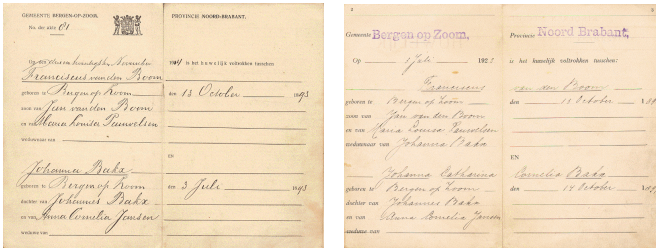 GEMEENTE BERGEN-OP-ZOOM. PROVINCIE NOORD-BRABANT.
No. der akte 61
Op den een November 19 4 is het huwelijk voltrokken tusschen
Franciscus van den Boom
geboren te Bergen op Zoom den 13 October 1893
zoon van Jan van den Boom
en van Maria Louisa Pauwelsen
weduwnaar van
EN
Johanna Bakx
geboren te Bergen op Zoom den 3 Juli 1893
dochter van Johannes Bakx
en van Anna Cornelia Jansen
weduwe van
2 3
Gemeente Bergen op Zoom. Provincie Noord Brabant,
Op 1 Juli 192 is het huwelijk voltrokken tusschen:
Franciscus van den Boom
geboren te Bergen op Zoom den 13 October 1
zoon van Jan van den Boom
en van Maria Louisa Pauwelsen
weduwnaar van Johanna Bakx
EN
Johanna Catharina Cornelia Bakx
geboren te Bergen op Zoom den 14 October 1
dochter van Johannes Bakx
en van Anna Cornelia Jansen
weduwe van